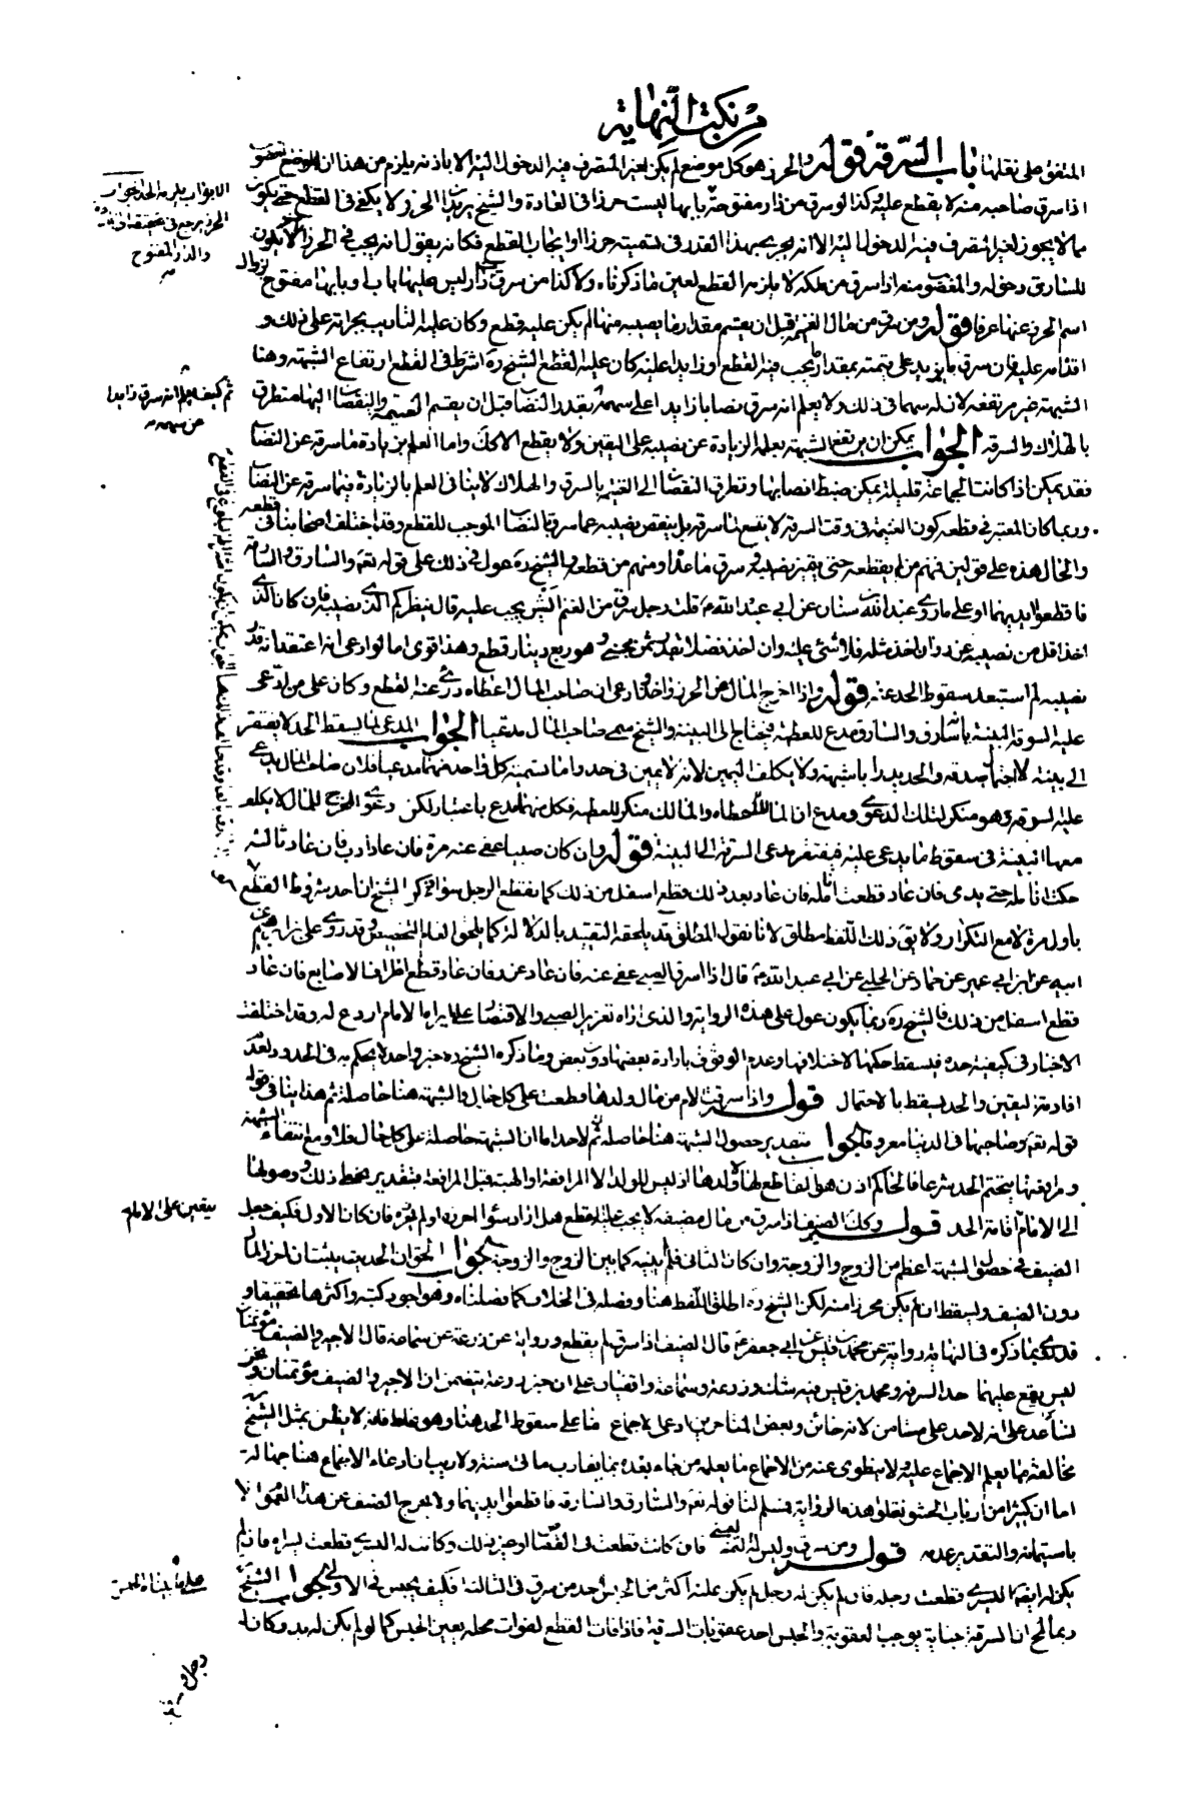 من نكت النهاية
المتفق على نقلها باب السرقة قوله والحرز هو كل موضع لم يكن لغير المتصرف فيه الدخول اليه الا باذنه يلزم من هذا ان
اذا سرق صاحبه منه لا يقطع عليه وكذا لو سرق من دار مفتوحة بابها ليست حرزا فى العادة والشيخ يريد بالحرز ولا يكفى فى القطع حتى يكون
مما لا يجوز لغير المتصرف فيه الدخول اليه الا انه يجب بهذا القدر فى تسميته حرزا وايجاب القطع فكانه يقول انه يجب فى الحرز الا يكون
للسارق دخوله والمغصوب منه اذا سرق من ملكه لا يلزمه القطع لعين ما ذكرناه ولا كذا من سرق دار ليس عليها باب او بابها مفتوح لزوال
اسم الحرز عنها عرفا قوله ومن سرق من مال الغنيمة قبل ان يقسم مقدار ما يصيبه منها لم يكن عليه قطع وكان عليه التاديب بجراته على ذلك و
اقدامه عليه فان سرق ما يزيد على قيمته بمقدار ما يجب فيه القطع او زايدا عليه كان عليه القطع الشيخ ره اشترط فى القطع ارتفاع الشبهة وهنا
الشبهة غير مرتفعة لان له سهما فى ذلك ولا يعلم انه سرق نصابا زايدا على سهمه بقدر النصاب قبل ان يقسم الغنيمة والنقصان اليها متطرق
بالهلاك والسرقة الجواب يمكن ان يرتفع الشبهة بعلم الزيادة عن نصيبه على اليقين ولا يقطع الا كذلك واما العلم بزيادة ما سرقه عن النصاب
فقد يمكن اذا كانت الجماعة قليلة يمكن ضبط انصابها وتطرق النقصان الى الغنيمة بالسرق والهلاك لا ينافى العلم بالزيادة فيما سرقه عن النصاب
وربما كان المعتبر فى قطعه كون الغنيمة فى وقت السرقة لا يتسع لما سرقه بل ينقص نصيبه عما سرق بالنصاب الموجب للقطع وقد اختلف اصحابنا فى قطعه
والحال هذه على قولين فمنهم من لم يقطعه حتى يتميز نصيبه وسرق ما عداه ومنهم من قطعه والشيخ ره عول فى ذلك على قوله تعم والسارق والسارقة
فاقطعوا ايديهما او على ما رواه عبد الله بن سنان عن ابى عبد الله ع قلت رجل سرق من الغنم ايش يجب عليه قال ينظر كم الذى نصيبه فان كان الذى
اخذ اقل من نصيبه عزر وان اخذ مثله فلا شئ عليه وان اخذ فضلا بقدر ثمن مجن وهو ربع دينار قطع وهذا قوى اما لو ادعى انه اعتقد انه قدر
نصيبه لم استبعد سقوط الحد عنه قوله واذا اخرج المال من الحرز واخذ وادعى ان صاحب المال اعطاه درئ عنه القطع وكان على من ادعى
عليه السرقة البينة بانه سارق والسارق مدع للعطية فيحتاج الى البينة والشيخ سمى صاحب المال مدعيا الجواب المدعى لما يسقط الحد لا يفتقر
الى بينة لاحتمال صدقه والحد يدرا بالشبهة ولا يكلف اليمين لانه لا يمين فى حد واما تسمية كل واحد منهما مدعيا فلان صاحب المال يدعى
عليه السرقة وهو منكر لتلك الدعوى ومدع ان المالك اعطاه والمالك منكر للعطية فكل منهما مدع باعتبار لكن دعوى المخرج للمال لا يكلف
معها البينة فى سقوط ما يدعى عليه فيفتقر مدعى السرقة الى البينة قوله وان كان صبيا عفى عنه مرة فان عاد ادب فان عاد ثالثة
حكت انامله حتى يدمى فان عاد قطعت انامله فان عاد بعد ذلك قطع اسفل من ذلك كما يقطع الرجل سواء ذكر الشيخ ان احد شروط القطع
باول مرة لا مع التكرار ولا يق ذلك اللفظ مطلق لانا نقول المطلق قد يلحقه التقييد بالدلالة كما يلحق العام التخصيص وقد روى على بن ابراهيم عن
ابيه عن ابن ابى عمير عن حماد عن الحلبى عن ابى عبد الله ع قال اذا سرق الصبى عفى عنه فان عاد عزر فان عاد قطع اطراف الاصابع فان عاد
قطع اسفل من ذلك فالشيخ ره ربما يكون عول على هذه الرواية والذى اراه تعزير الصبى والاقتصار على ما يراه الامام اردع له وقد اختلفت
الاخبار فى كيفية حده فيسقط حكمها لاختلافها وعدم الوثوق بارادة بعضها دون بعض وما ذكره الشيخ ره خبر واحد لا يحكم به فى الحدود لعدم
افادته اليقين والحد يسقط بالاحتمال قوله واذا سرقت الام من مال ولدها قطعت على كل حال والشبهة هنا حاصلة ثم هذا ينافى قوله
قوله تعم وصاحبهما فى الدنيا معروفا الجواب بتقدير حصول الشبهة هنا حاصلة ثم لا حد اما ان الشبهة حاصلة على كل حال فلا ومع انتفاء الشبهة
ومرافعتها يتحتم الحد شرعا فالحاكم اذن هو القاطع لها لا ولدها اذ ليس للولد الا المرافعة او الهبة قبل المرافعة بتقدير يحفظ ذلك وصولها
الى الامام اقامة الحد قوله وكك الضيف اذا سرق من مال مضيفه لا يجب عليه القطع هل اراد سواء احرزه او لم يحرزه فان كان الاول فكيف جعل
الضيف فى حصول الشبهة اعظم من الزوج والزوجة وان كان الثانى فلم لم يبينه كما بين الزوج والزوجة الجواب الحق ان الحد يثبت ان احرز المال
دون الضيف ويسقط ان لم يكن محرزا منه لكن الشيخ ره اطلق اللفظ هنا وفصله فى الخلاف كما فصلناه وهو اجود كتبه واكثرها تحقيقا و
قد تمسك بما ذكره فى النهاية رواية عن محمد بن قيس عن ابى جعفر ع قال الضيف اذا سرق لم يقطع ورواية عن زرعة عن سماعة قال الاجير والضيف مؤتمنان
ليس يقع عليهما حد السرقة ومحمد بن قيس فيه شك وزرعة وسماعة واقفيان على ان خبر زرعة يتضمن ان الاجير والضيف مؤتمنان ونحن
نساعد على انه لا حد على مستامن لانه خائن وبعض المتاخرين ادعى الاجماع هنا على سقوط الحد هنا وهو غلط فانه لا يظن بمثل الشيخ
مخالفة ما يعلم الاجماع عليه ولا ينطوى عنه من الاجماع ما يعلمه من جاء بعده بما يقارب مائتى سنة ولا ريب ان ادعاء الاجماع هنا جهالة
اما ان كثيرا من ارباب الحشو نقلوا هذه الرواية فمسلم لنا قوله تعم والسارق والسارقة فاقطعوا ايديهما ولا يخرج الضيف عن هذا العموم الا
باستيمانه والتقدير عدمه قوله ومن سرق وليس له اليمنى فان كانت قطعت فى القصاص او غير ذلك وكانت له اليسرى قطعت يسراه فان لم
يكن له ايضا اليسرى قطعت رجله فان لم يكن له رجل لم يكن عليه اكثر من الحبس واحد من سرق فى الثالثة فكيف يحبس فى الاولى الجواب الشيخ
ربما لمح ان السرقة جناية يوجب العقوبة والحبس احد عقوبات السرقة فاذا فات القطع لفوات محله يعين الحبس كما لو لم يكن له يد وكانت
ثم كيف يعلم انه سرق زايدا
عن سهمه
بيقين على الامام
على ما بيناه الحبس